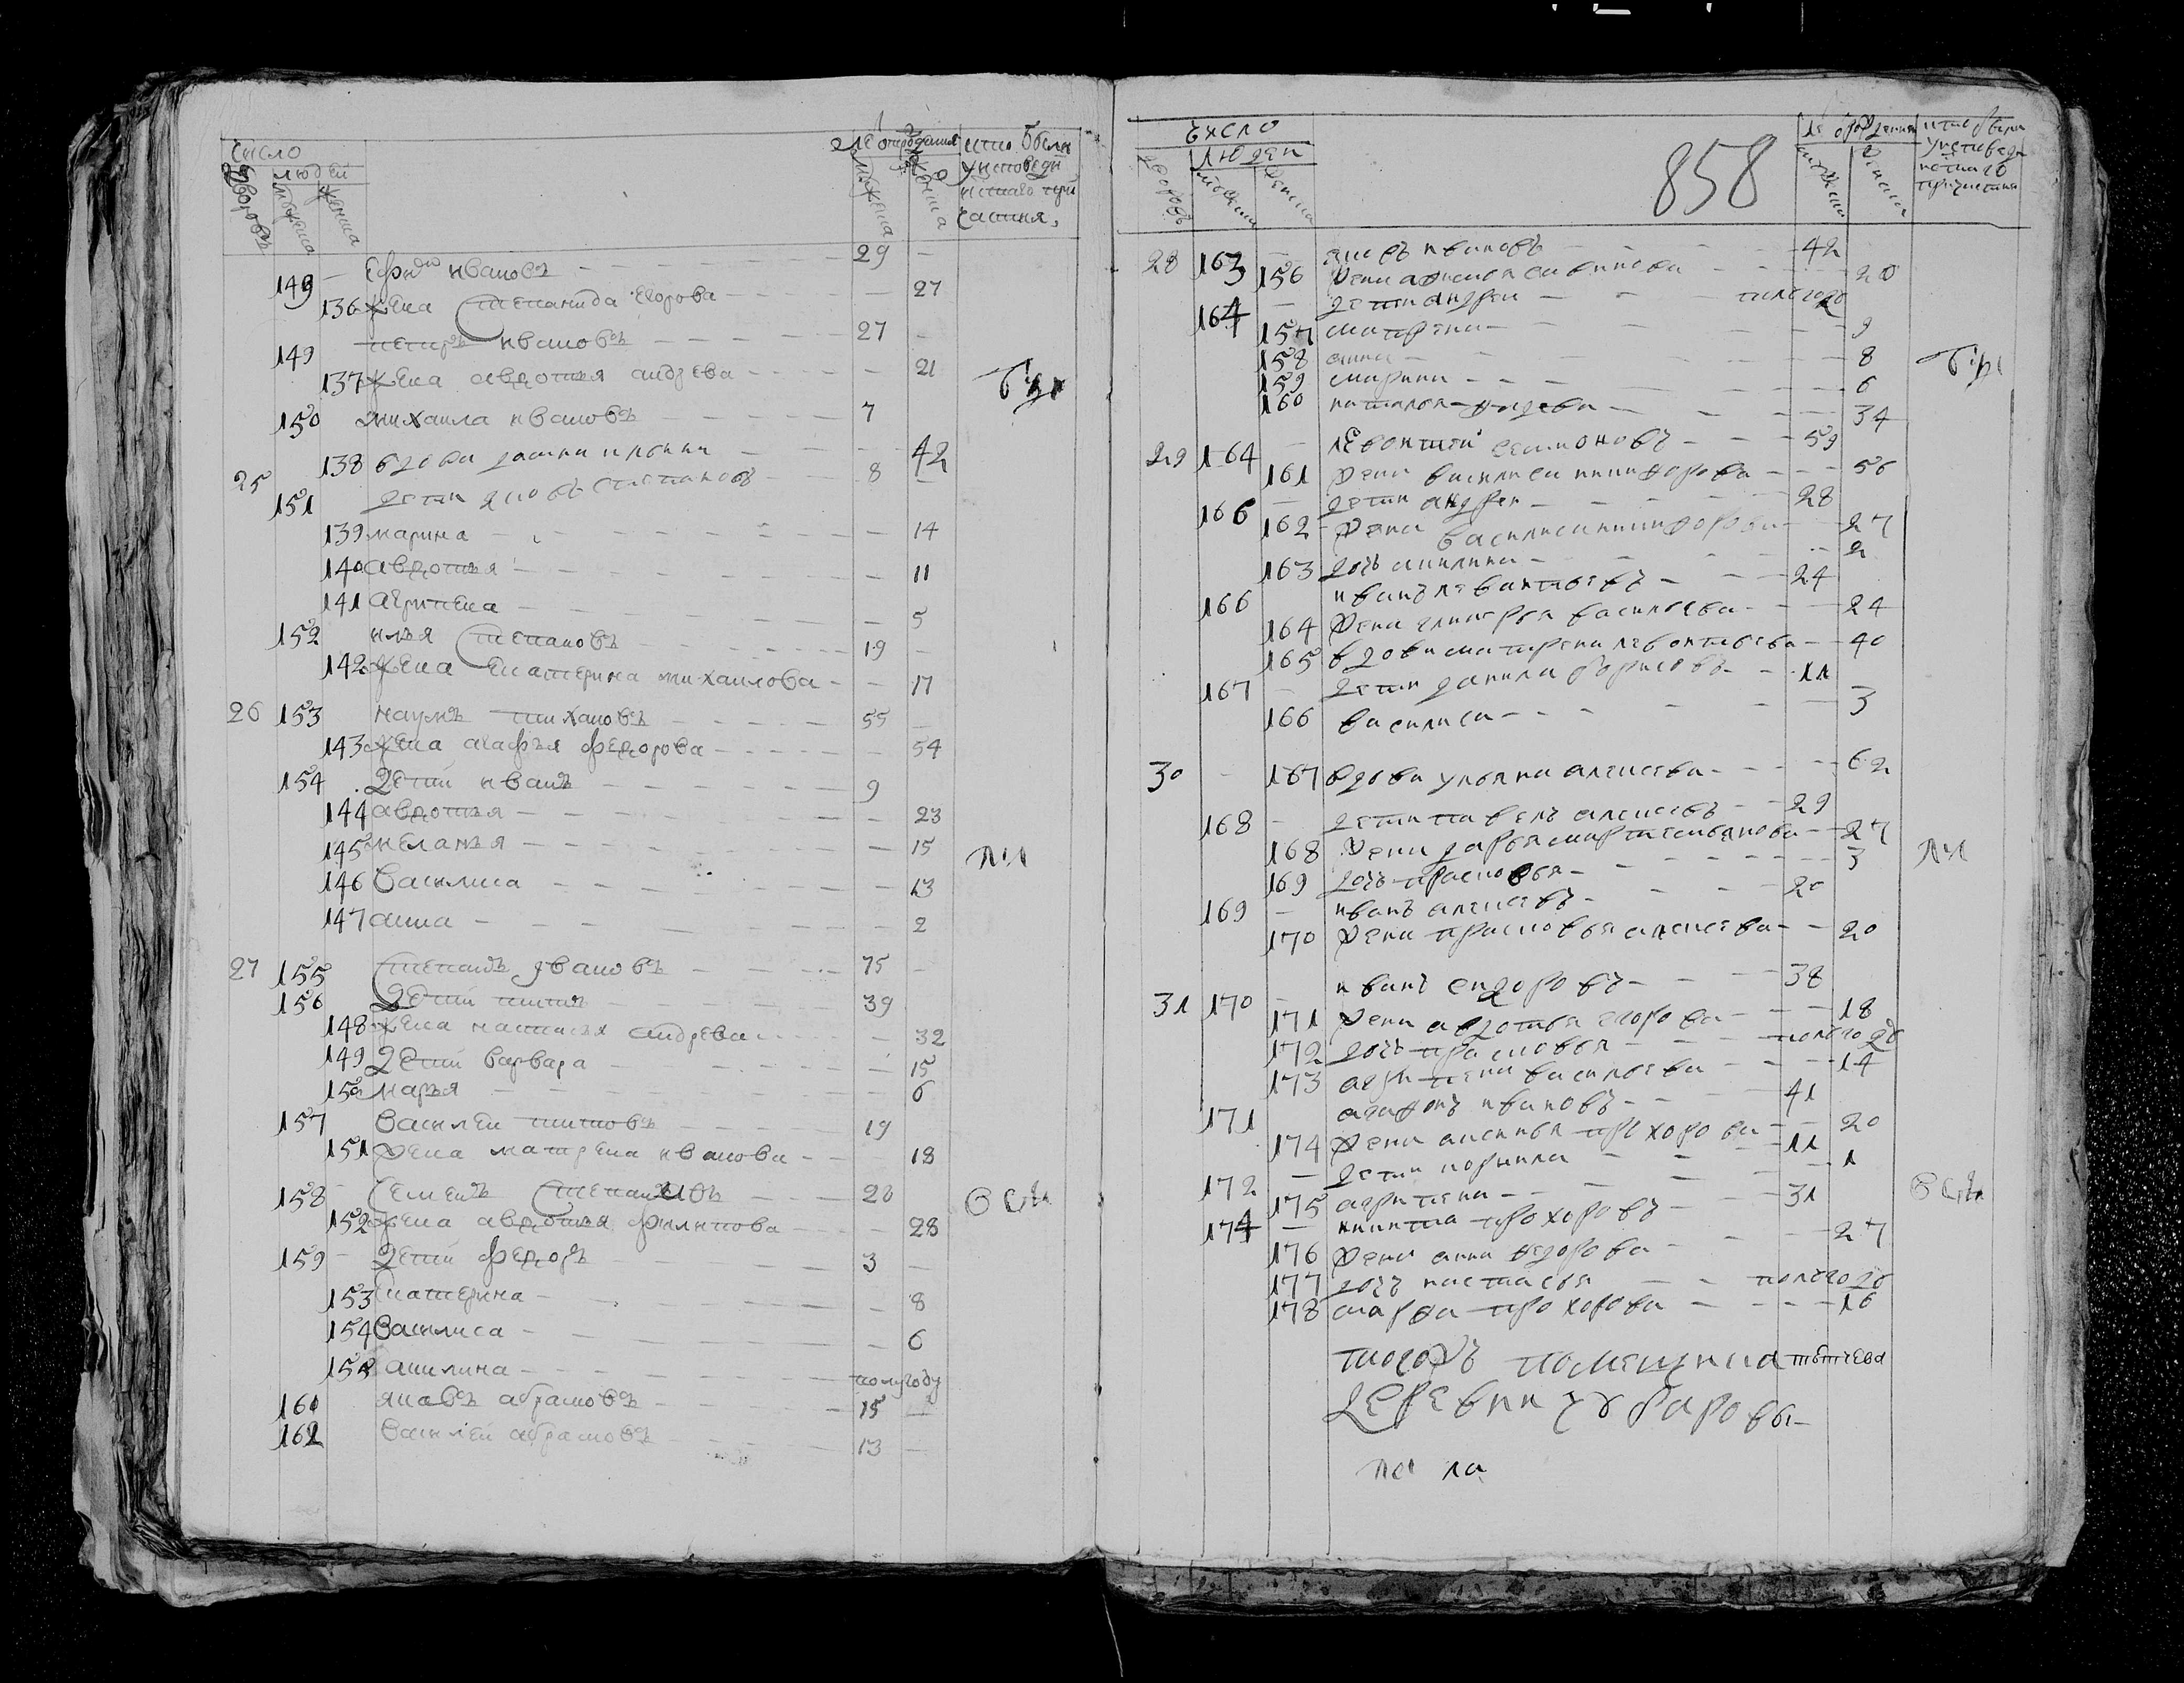 число
людей
дворовъ
мужеска
женска
лѣ от рождения
мужеска
женска
кто были
у исповеди
и с̃таго при
частия,
149 — Ефимъ ивановъ — 29 —
136 жена степанида егорова — — 27
149 петръ ивановъ — 27 —
137 жена авдотья андрева — — 21
150 михаила ивановъ — 7
138 вдова — 42
25 151 дети яковъ степановъ — 8
139 марина — 14
140 авдотья — 11
141 агрипена — 5
152 илья степановъ — 19 —
142 жена екатерина михаилова — — 17
26 153 наумъ — 55 —
143 жена агафья федорова — 54
154 дети иванъ — 9
144 авдотья — 23
145 меланья — 15
146 василиса — 13
147 анна — 2
27 155 степанъ ивановъ — 75 —
156 дети титъ — 39
148 жена настасья андрева — 32
149 дети варвара — 15
150 марья — 6
157 василеи титовъ — 19
151 жена матрена иванова — 18
158 семенъ степановъ — 28
152 жена авдотья филипова — 28
159 — дети федоръ — 3 —
153 катерина — 8
154 василиса — 6
155 акилина — полугоду
160 яковъ абрамовъ — 15 —
162 василеи абрамовъ — 13 —
число
людеи
дворовъ
858
28 163 — яковъ ивановъ — 42
156 жена — 20
164 — дети андреи —
157 матрена — 9
158 анна — 8
159 марина — 6
160 наталья — 34
29 164 — левонтии семионовъ — 59
161 жена василиса никифорова — 56
166 — дети андреи — 28
162 жена василиса никифорова — 27
163 дочь акилина — 2
166 иванъ левонтьевъ — 24
164 жена гликерья васильева — 24
165 вдова матрена левонтьева — 40
167 — дети данила борисовъ — 11
166 василиса — 3
30 — 167 вдова ульяна алексева — 62
168 — дети павелъ алексевъ — 29
168 жена дарья — 27
169 дочь прасковья — 3
169 — иванъ алексевъ — 20
170 жена прасковья алексева — 20
31 170 — иванъ сидоровъ — 38
171 жена авдотья егорова — 18
172 дочь прасковья — полъгоду
173 агрипена васильева — 14
171 агафонъ ивановъ — 41
174 жена аксинья прохорова — 20
172 — дети корнила — 11
175 агрипена — 1
174 — никита прохоровъ — 31
176 жена анна федорова — 27
177 дочь настасья — полъгоду
178 марфа прохорова — 16
тогожъ помещика тютчева
деревни губаровы